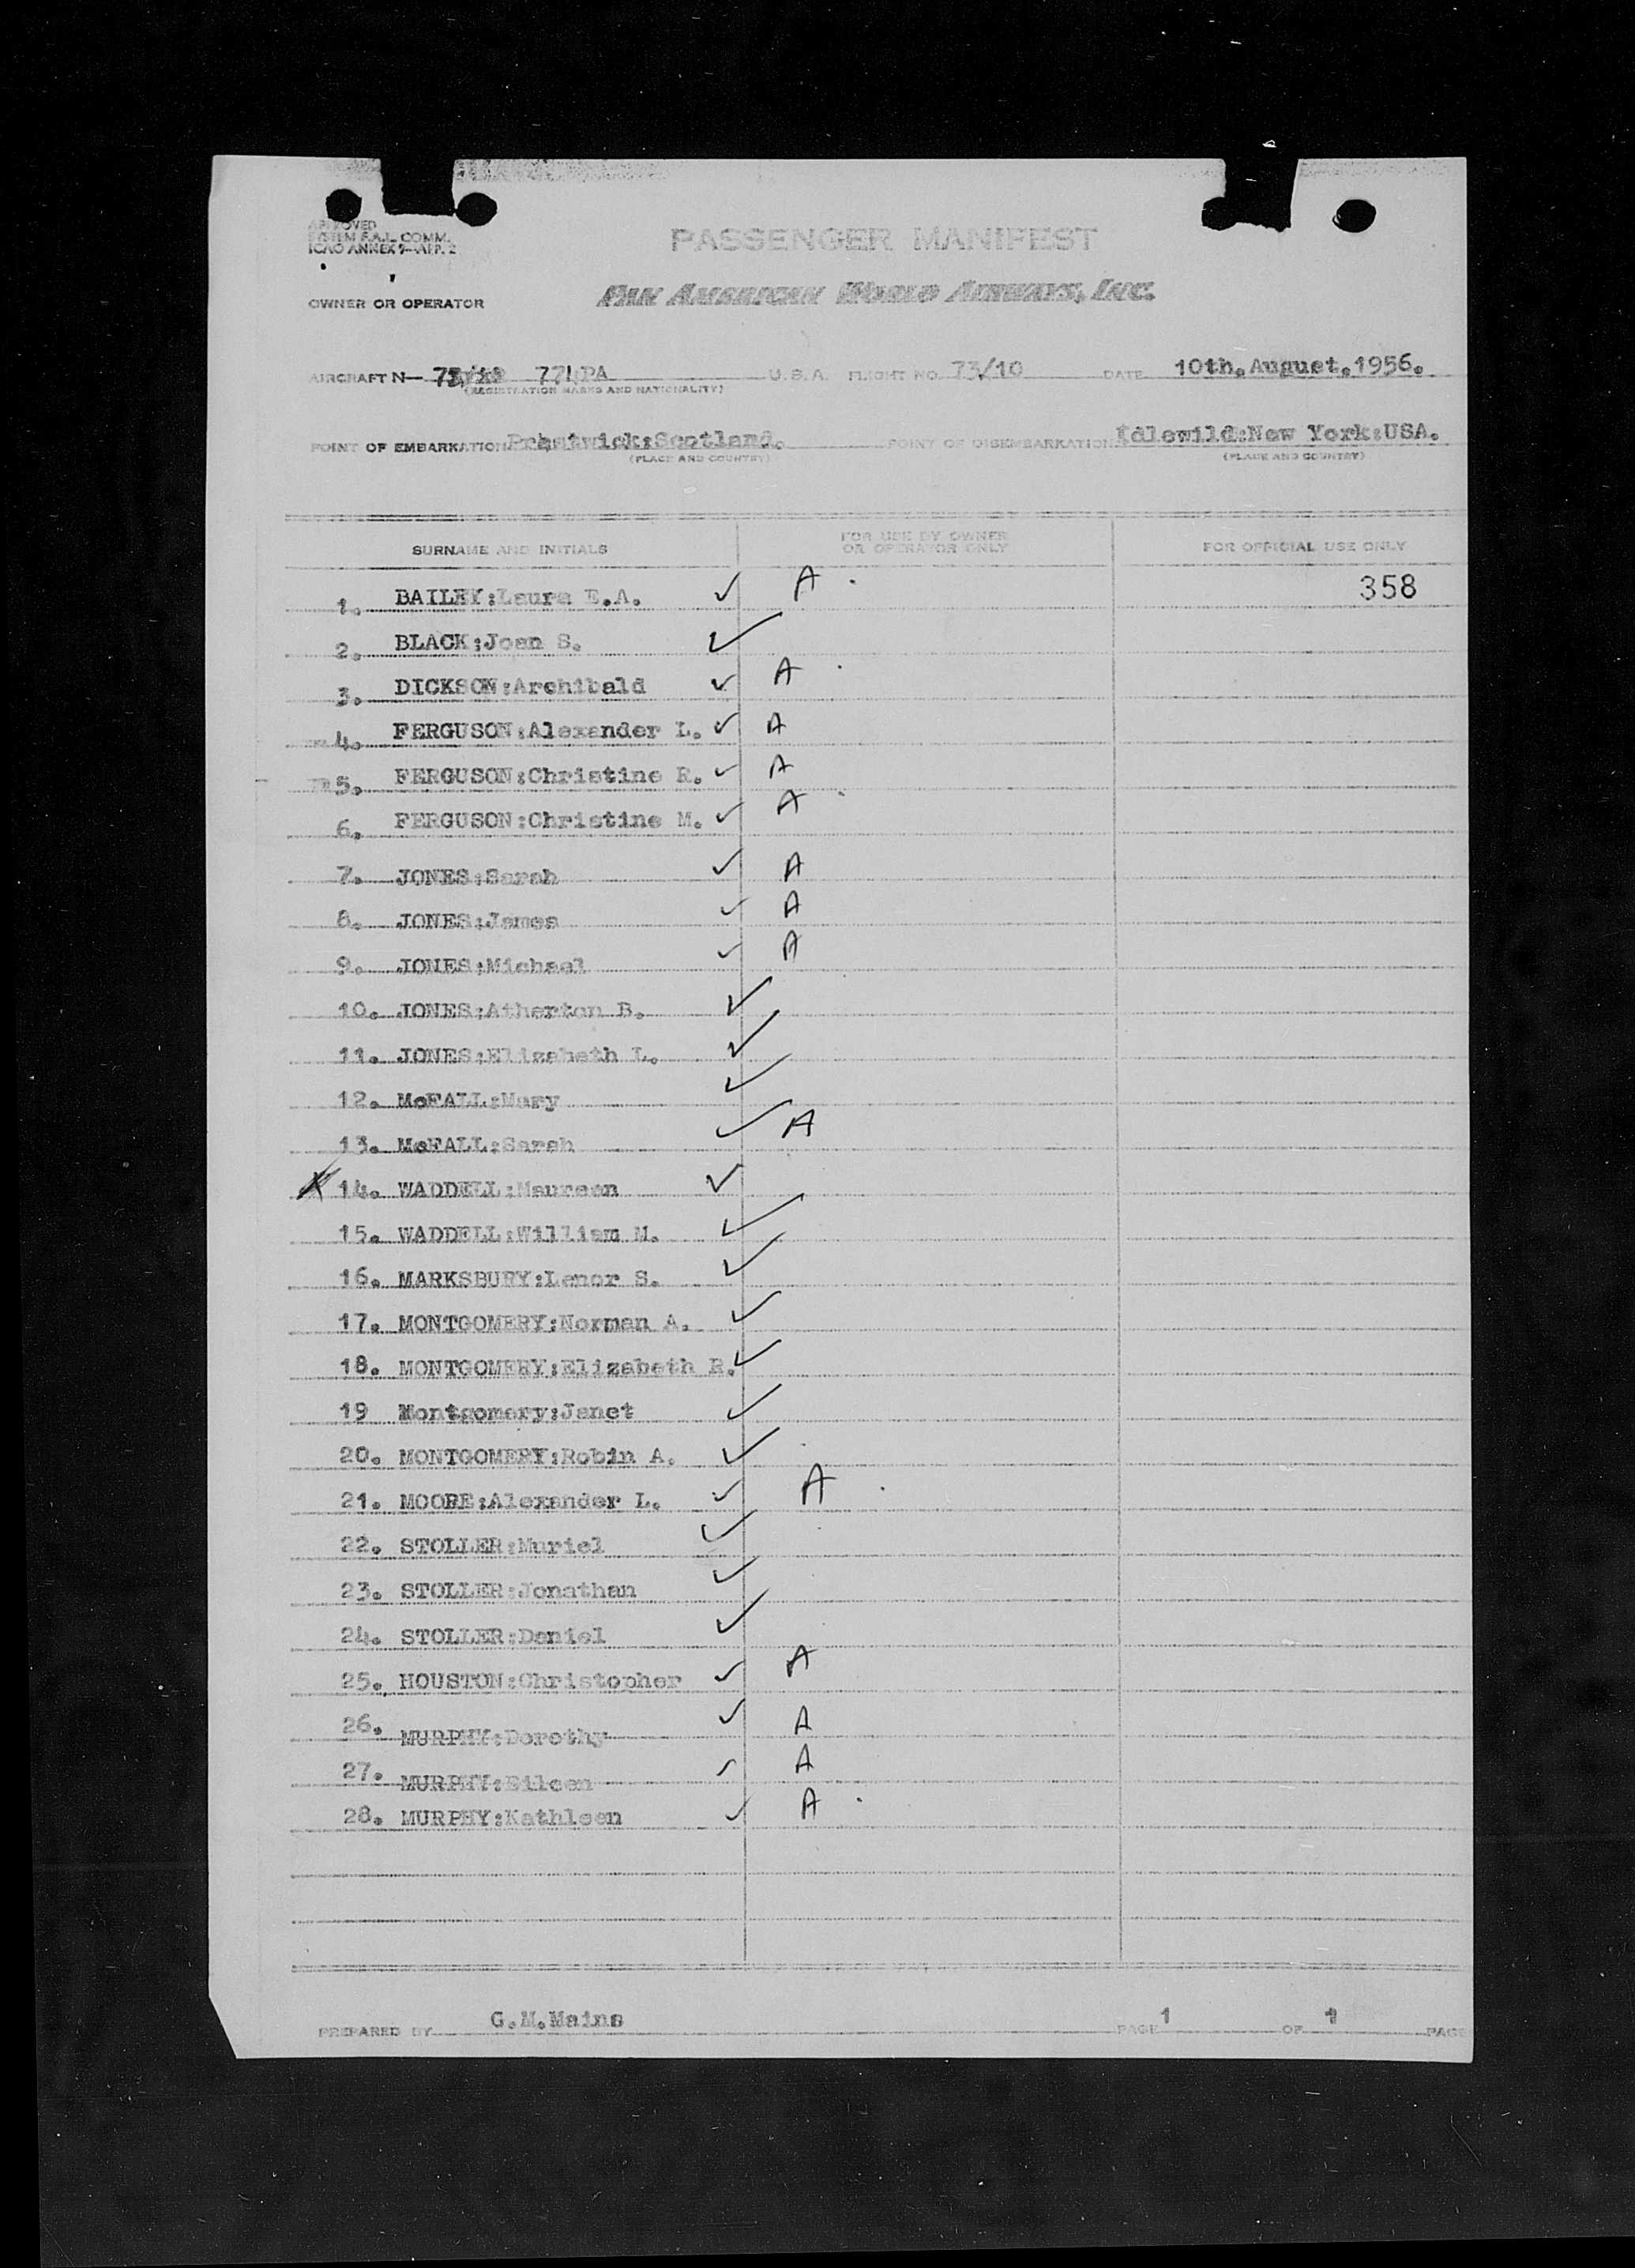 APPROVED
SYSTEM F.A.L. COMM.
ICAO ANNEX 9—APP. 2
PASSENGER MANIFEST
OWNER OR OPERATOR PAN AMERICAN WORLD AIRWAYS, INC.
AIRCRAFT N— 774PA U.S.A. FLIGHT NO. 73/10 DATE 10th.August.1956.
(REGISTRATION MARKS AND NATIONALITY)
POINT OF EMBARKATION Prestwick:Scotland. POINT OF DISEMBARKATION Idlewild:New York:USA.
(PLACE AND COUNTRY) (PLACE AND COUNTRY)
SURNAME AND INITIALS FOR USE BY OWNER OR OPERATOR ONLY FOR OFFICIAL USE ONLY
1. BAILEY:Laura E.A. ✓ A 358
2. BLACK:Joan S. ✓
3. DICKSON:Archibald ✓ A
4. FERGUSON:Alexander L. ✓ A
5. FERGUSON:Christine R. ✓ A
6. FERGUSON:Christine M. ✓ A
7. JONES:Sarah ✓ A
8. JONES:James ✓ A
9. JONES:Michael ✓ A
10. JONES:Atherton B. ✓
11. JONES:Elizabeth L. ✓
12. McFALL:Mary ✓
13. McFALL:Sarah ✓ A
X 14. WADDELL:Maureen ✓
15. WADDELL:William M. ✓
16. MARKSBURY:Lenor S. ✓
17. MONTGOMERY:Norman A. ✓
18. MONTGOMERY:Elizabeth R. ✓
19 Montgomery:Janet ✓
20. MONTGOMERY:Robin A. ✓
21. MOORE:Alexander L. ✓ A
22. STOLLER:Muriel ✓
23. STOLLER:Jonathan ✓
24. STOLLER:Daniel ✓
25. HOUSTON:Christopher ✓ A
26. MURPHY:Dorothy ✓ A
27. MURPHY:Eileen ✓ A
28. MURPHY:Kathleen ✓ A
PREPARED BY G.M.Mains PAGE 1 OF 1 PAGE